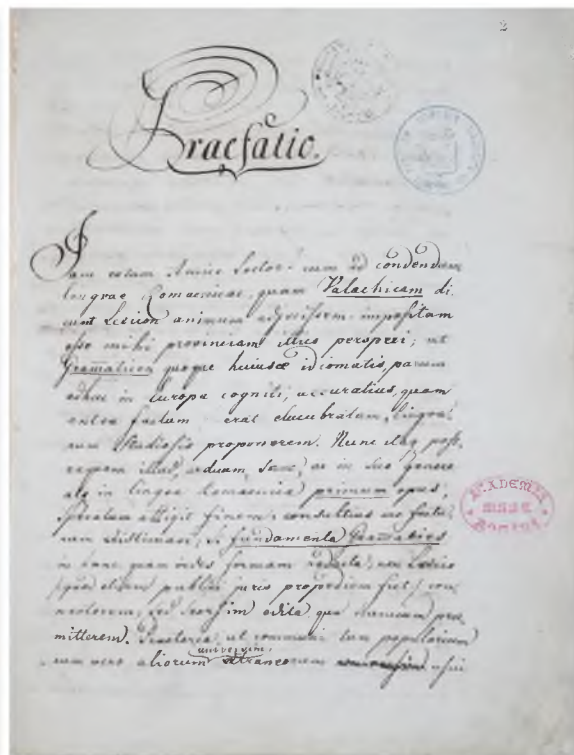 2
Praefatio.
Jam eram Amice Lector! cum ad condendum
linguae Romaenicae, quam Valachicam di
cunt Lexicon animum adjecissem impositam
esse mihi provinciam ultro perspexi; ut
Gramaticen quoque huiusce idiomatis, parum
adhuc in Europa cogniti, accuratius, quam
antea factum erat elucubratam, lingua
rum studiosis proponerem. Nunc itaq post
eaquam illud, arduum, sane, ac in suo genere
in lingua Romaenica primum opus,
attigit finem; consultius me factu
rum existimavi, si fundamenta Gramatices
in hanc quam vides formam redacta, non Lexico
(quod etiam publici juris propediem fiet) con
necterem, sed seorsim edita, quam
mitterem. Praeterea, ut communi tam popularium
universim
tum vero aliorum extraneorum usui
ACADEMIA
ROMANA